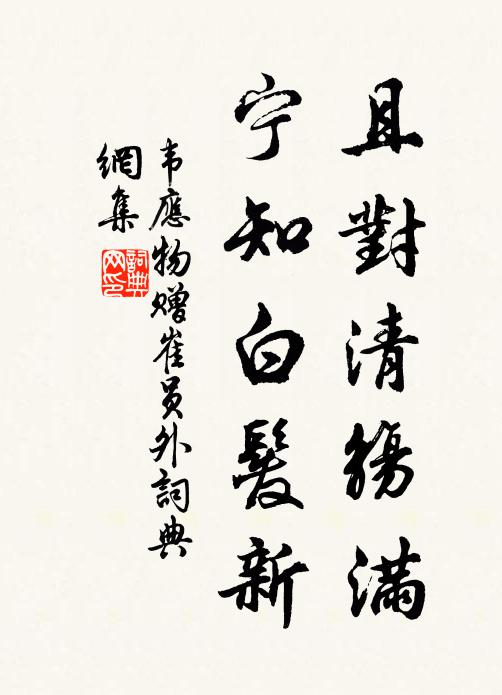 且對清觴滿
宁知白髮新
韦應物赠崔员外詞典
網集
詞典
网印